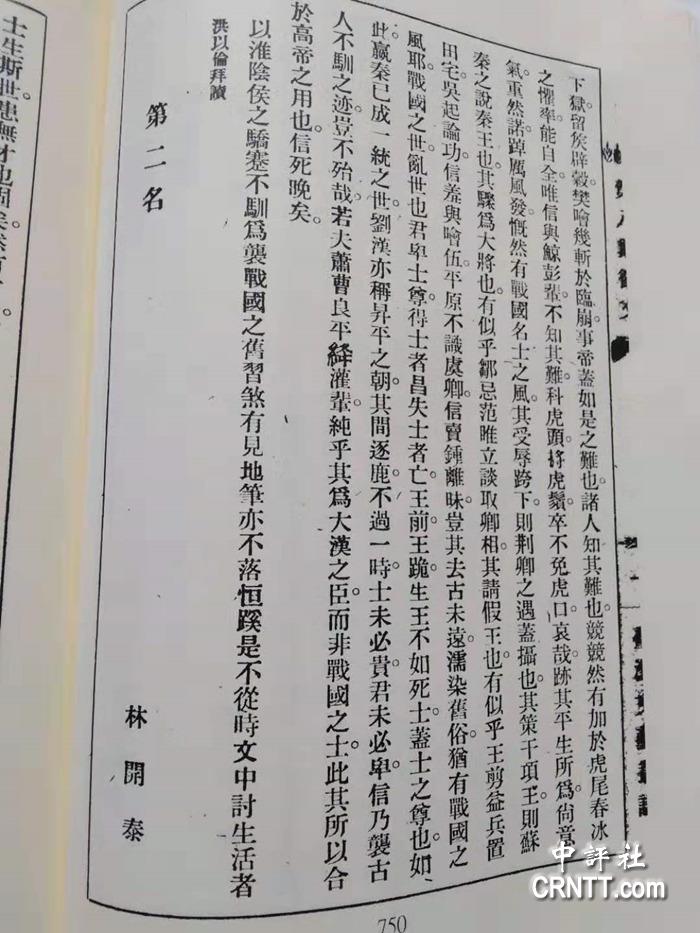 下獄留侯辟穀樊噲幾斬於臨崩事帝蓋如是之難也諸人知其難也兢兢然有加於虎尾春冰
之懼率能自全唯信與鯨彭輩不知其難科虎頭捋虎鬚卒不免虎口哀哉跡其平生所爲尙意
氣重然諾踔厲風發慨然有戰國名士之風其受辱跨下則荆卿之遇蓋攝也其策干項王則蘇
秦之說秦王也其驟爲大將也有似乎鄒忌范睢立談取卿相其請假王也有似乎王剪益兵置
田宅吳起論功信羞與噲伍平原不識虞卿信賣鍾離昧豈其去古未遠濡染舊俗猶有戰國之
風耶戰國之世亂世也君卑士尊得士者昌失士者亡王前王跪生王不如死士蓋士之尊也如
此嬴秦已成一統之世劉漢亦稱昇平之朝其間逐鹿不過一時士未必貴君未必卑信乃襲古
人不馴之迹豈不殆哉若夫蕭曹良平絳灌輩純乎其爲大漢之臣而非戰國之士此其所以合
於高帝之用也信死晚矣
以淮陰侯之驕蹇不馴爲襲戰國之舊習煞有見地筆亦不落恒蹊是不從時文中討生活者
洪以倫拜讀
第二名
林開泰
士生斯世患無才也固
750
中評社
CRNTT.com